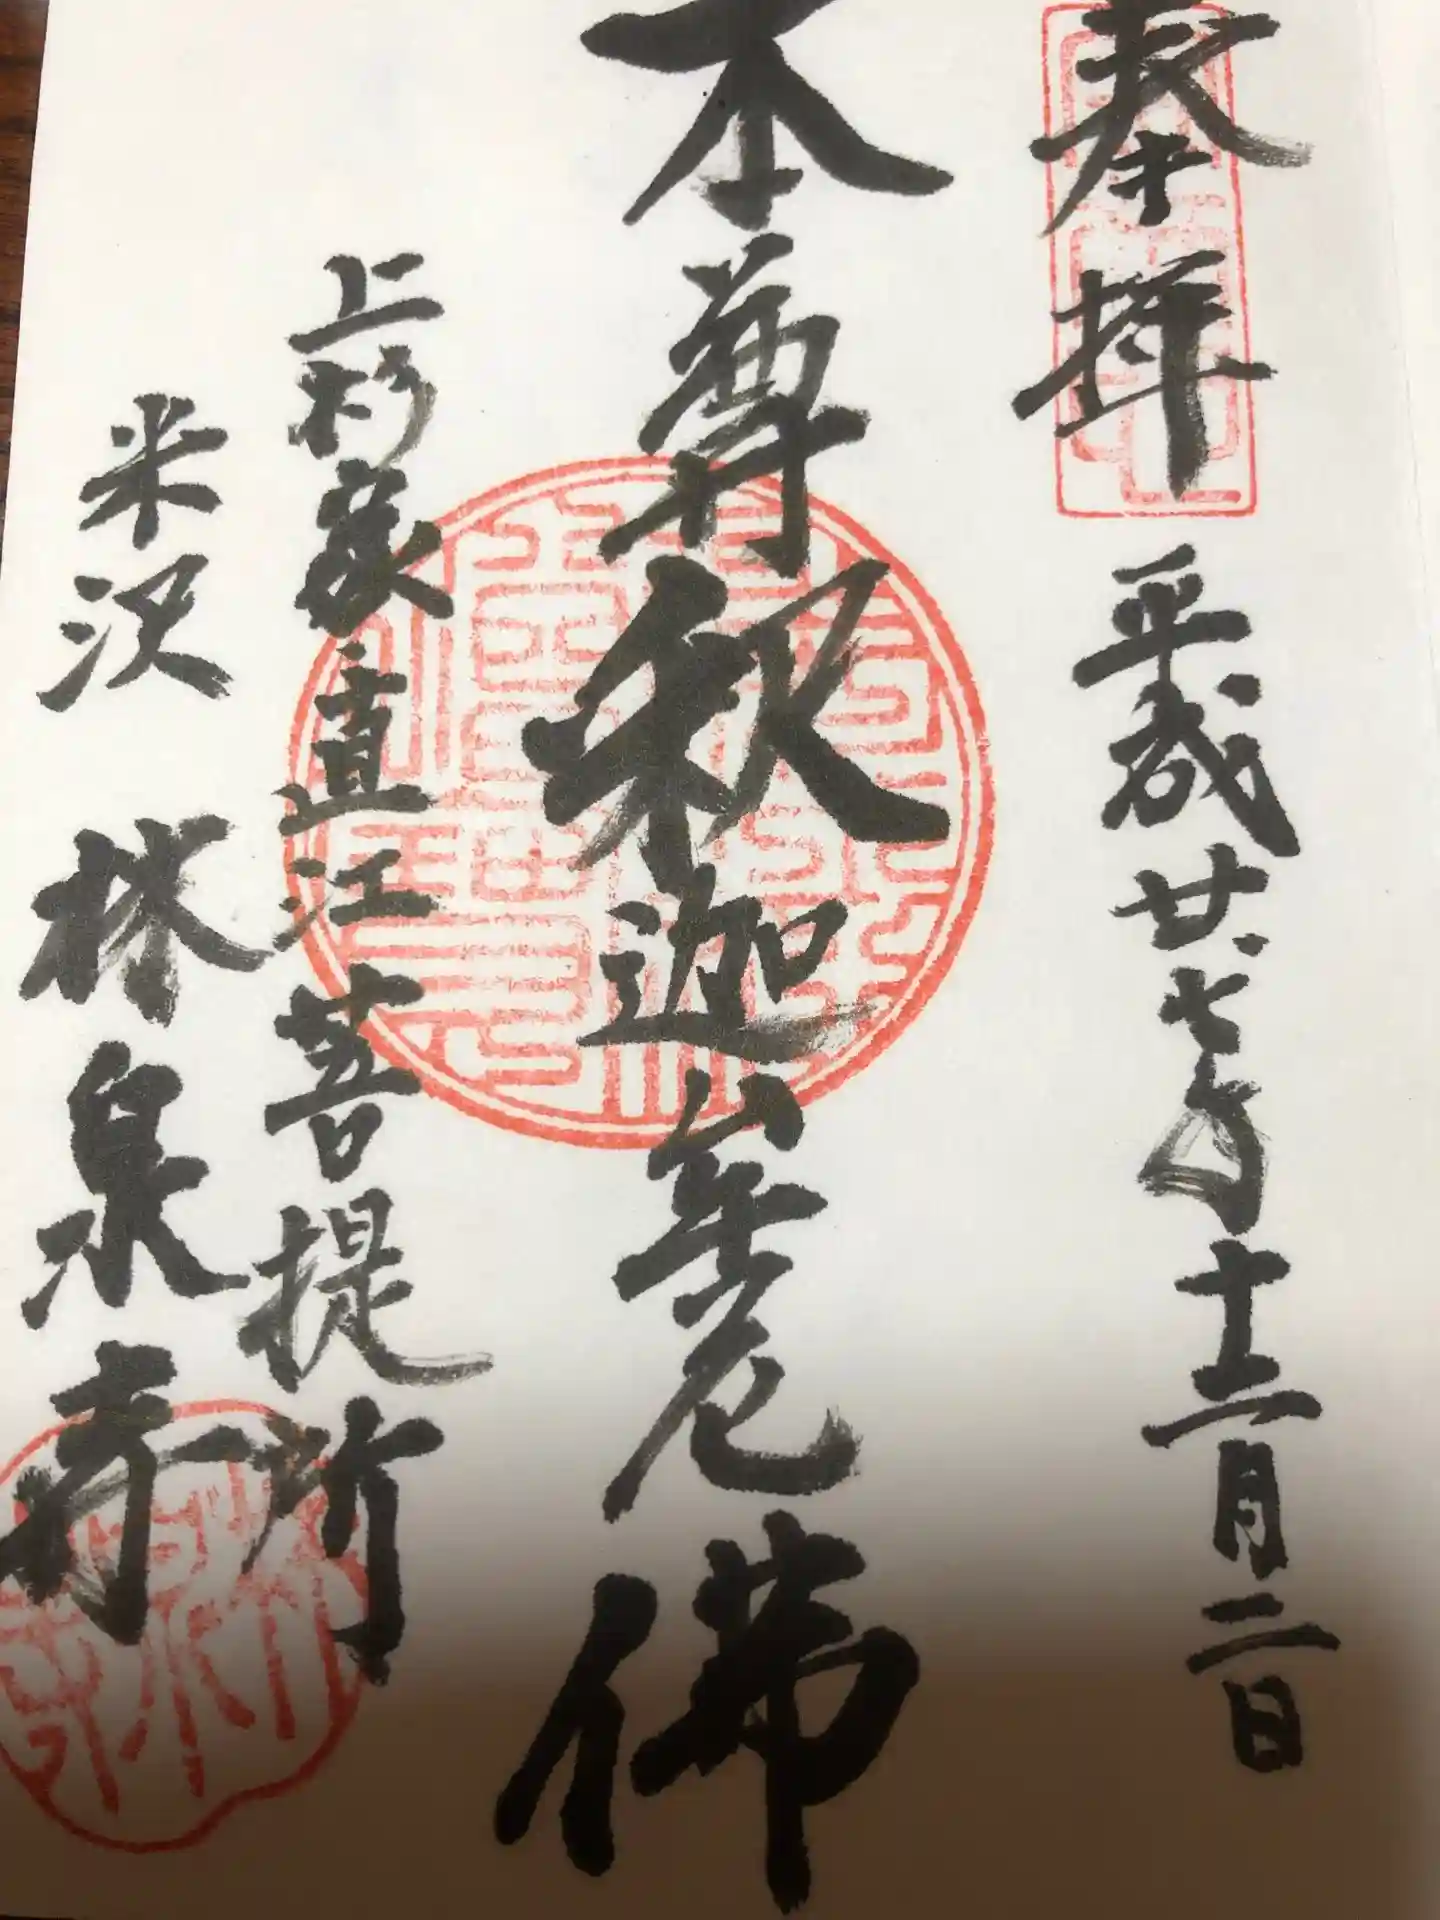 奉拝
平成廿七年十二月二日
本尊釈迦牟尼佛
上杉家直江菩提所
米沢 林泉寺